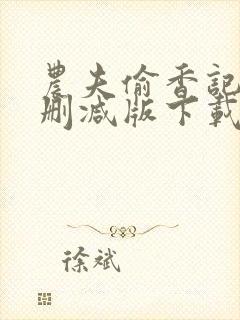 農夫偷香記
删减版下載
徐斌